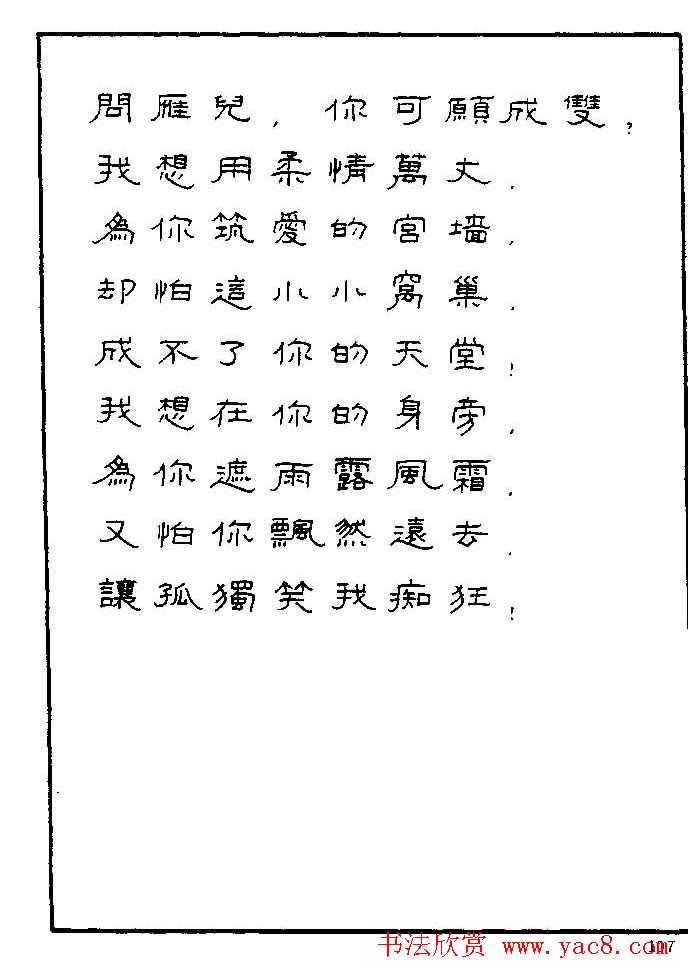 問雁兒，你可願成雙，
我想用柔情萬丈．
為你筑愛的宮墻，
却怕這小小窩巢．
成不了你的天堂！
我想在你的身旁．
為你遮雨露風霜．
又怕你飄然遠去．
讓孤獨笑我痴狂！
书法欣赏 www.yac8.com
107